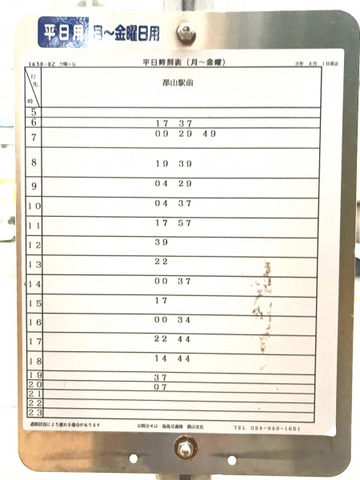 平日用 月～金曜日用
1638-02
平日時刻表（月～金曜）
行先
時
郡山駅前
5
6 17 37
7 09 29 49
8 19 39
9 04 29
10 04 37
11 17 57
12 39
13 22
14 00 37
15 17
16 00 34
17 22 44
18 14 44
19 37
20 07
21
22
23
道路状況により遅れる場合があります お問合せは 福島交通㈱ 郡山支社 TEL 024-949-1651